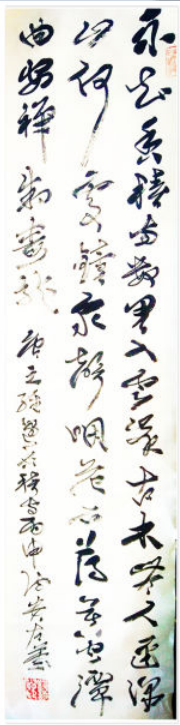 不知香積寺數里入雲峰古木無人径深
山何處鐘泉聲咽危石薄暮空潭
曲安禪制毒龍
唐王維過香積寺丙申